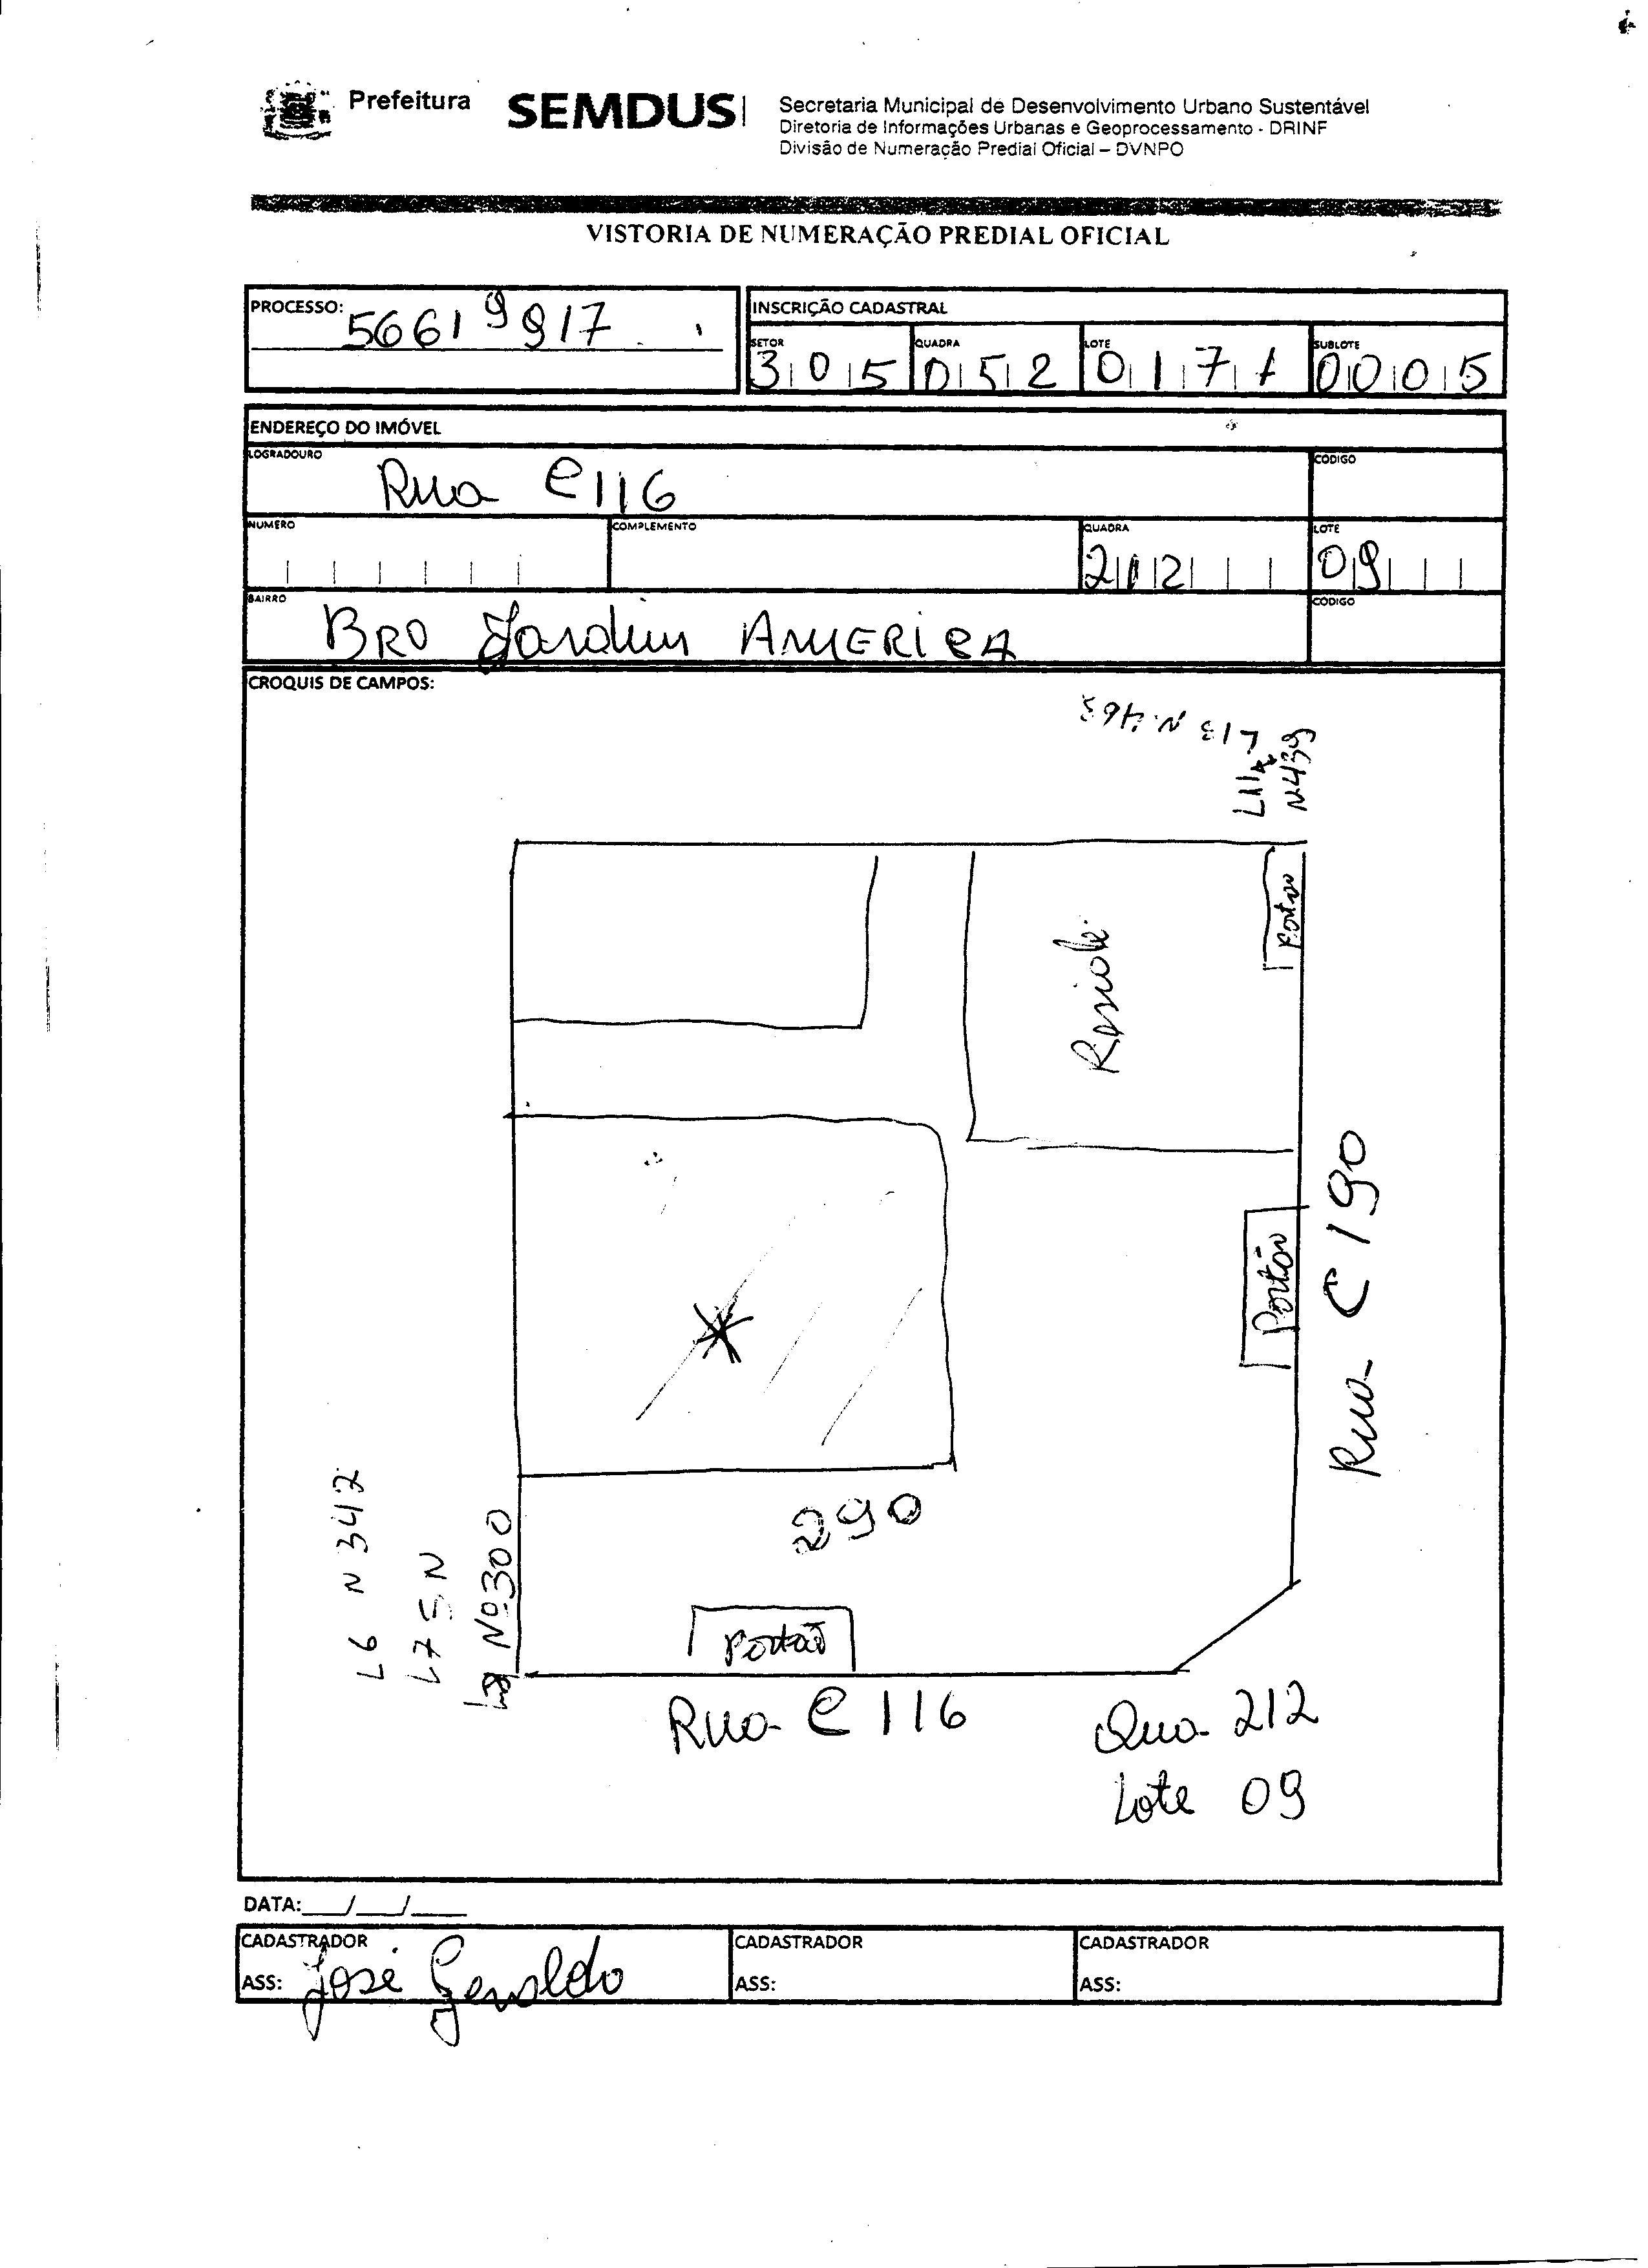 Prefeitura SEMDUS
Secretaria Municipal de Desenvolvimento Urbano Sustentável
Diretoria de Informações Urbanas e Geoprocessamento - DRINF
Divisão de Numeração Predial Oficial – DVNPO
VISTORIA DE NUMERAÇÃO PREDIAL OFICIAL
PROCESSO: 56619917
INSCRIÇÃO CADASTRAL
SETOR QUADRA LOTE SUBLOTE
305 052 0171 0005
ENDEREÇO DO IMÓVEL
LOGRADOURO CÓDIGO
Rua C116
NUMERO COMPLEMENTO QUADRA LOTE
212 09
BAIRRO CÓDIGO
BRO Jardim AMERICA
CROQUIS DE CAMPOS:
L13 N.463
L11
N439
Portão
Reside
Rua C 190
Portão
290
L6 N 342
L7 SN
L8 Nº 300
Portão
Rua C 116
Qua 212
Lote 09
DATA:___/___/____
CADASTRADOR CADASTRADOR CADASTRADOR
ASS: José Geraldo ASS: ASS: